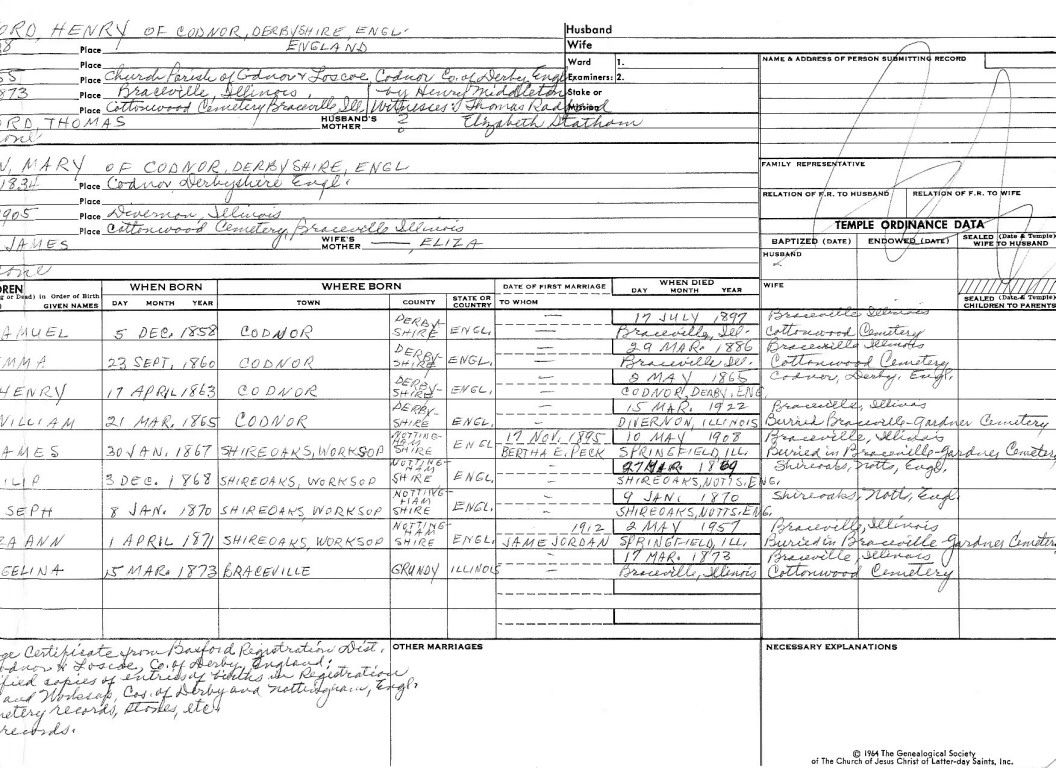 ORD, HENRY OF CODNOR, DERBYSHIRE, ENGL. Husband
8 Place ENGLAND Wife
Place Ward 1. NAME & ADDRESS OF PERSON SUBMITTING RECORD
55 Place Church Parish of Codnor & Loscoe, Codnor Co. of Derby Engl Examiners: 2.
873 Place Braceville, Illinois, by Henry Middleton Stake or
Place Cottonwood Cemetery Braceville, Ill, Witnesses: Thomas Radford Mission
ORD, THOMAS HUSBAND'S MOTHER ? Elizabeth Statham
one
N, MARY OF CODNOR, DERBYSHIRE, ENGL FAMILY REPRESENTATIVE
1834 Place Codnor, Derbyshire Engl.
Place RELATION OF F.R. TO HUSBAND RELATION OF F.R. TO WIFE
905 Place Divernon, Illinois
Place Cottonwood Cemetery, Braceville Illinois TEMPLE ORDINANCE DATA
JAMES WIFE'S MOTHER ——, ELIZA BAPTIZED (DATE) ENDOWED (DATE) SEALED (Date & Temple) WIFE TO HUSBAND
HUSBAND
one
REN WHEN BORN WHERE BORN DATE OF FIRST MARRIAGE WHEN DIED WIFE
g or Dead) in Order of Birth SEALED (Date & Temple) CHILDREN TO PARENTS
GIVEN NAMES DAY MONTH YEAR TOWN COUNTY STATE OR COUNTRY TO WHOM DAY MONTH YEAR
17 JULY 1897 Braceville Illinois
AMUEL 5 DEC. 1858 CODNOR DERBY-SHIRE ENGL. — Braceville, Ill. Cottonwood Cemetery
29 MAR. 1886 Braceville Illinois
MMA 23 SEPT, 1860 CODNOR DERBY-SHIRE ENGL. — Braceville Ill. Cottonwood Cemetery
2 MAY 1865 Codnor, Derby, Engl.
HENRY 17 APRIL 1863 CODNOR DERBY-SHIRE ENGL. — CODNOR, DERBY, ENG.
15 MAR. 1922 Braceville, Illinois
WILLIAM 21 MAR. 1865 CODNOR DERBY-SHIRE ENGL. — DIVERNON, ILLINOIS Burried Braceville-Gardner Cemetery
17 NOV. 1895 10 MAY 1908 Braceville, Illinois
AMES 30 JAN. 1867 SHIREOAKS, WORKSOP NOTTING-HAM SHIRE ENGL BERTHA E. PECK SPRINGFIELD, ILL. Buried in Braceville-Gardner Cemetery
27 MAR. 1869 Shireoaks, Notts, Engl.
ILIP 3 DEC. 1868 SHIREOAKS, WORKSOP NOTTING-HAM SHIRE ENGL. — SHIREOAKS, NOTTS, ENG.
9 JAN. 1870 Shireoaks, Nott, Engl.
SEPH 8 JAN. 1870 SHIREOAKS, WORKSOP NOTTING-HAM SHIRE ENGL. — SHIREOAKS, NOTTS, ENG.
1912 2 MAY 1957 Braceville, Illinois
ZA ANN 1 APRIL 1871 SHIREOAKS, WORKSOP NOTTING-HAM SHIRE ENGL. JAME JORDAN SPRINGFIELD, ILL. Buried in Braceville-Gardner Cemetery
17 MAR. 1873 Braceville, Illinois
GELINA 15 MAR. 1873 BRACEVILLE GRUNDY ILLINOIS — Braceville, Illinois Cottonwood Cemetery
ge Certificate from Basford Registration Dist. OTHER MARRIAGES NECESSARY EXPLANATIONS
odnor & Loscoe, Co. of Derby, England;
fied copies of entries of births in Registration
and Worksop, Cos. of Derby and Nottingham, Engl.
metery records, stones, etc
records.
© 1964 The Genealogical Society
of The Church of Jesus Christ of Latter-day Saints, Inc.